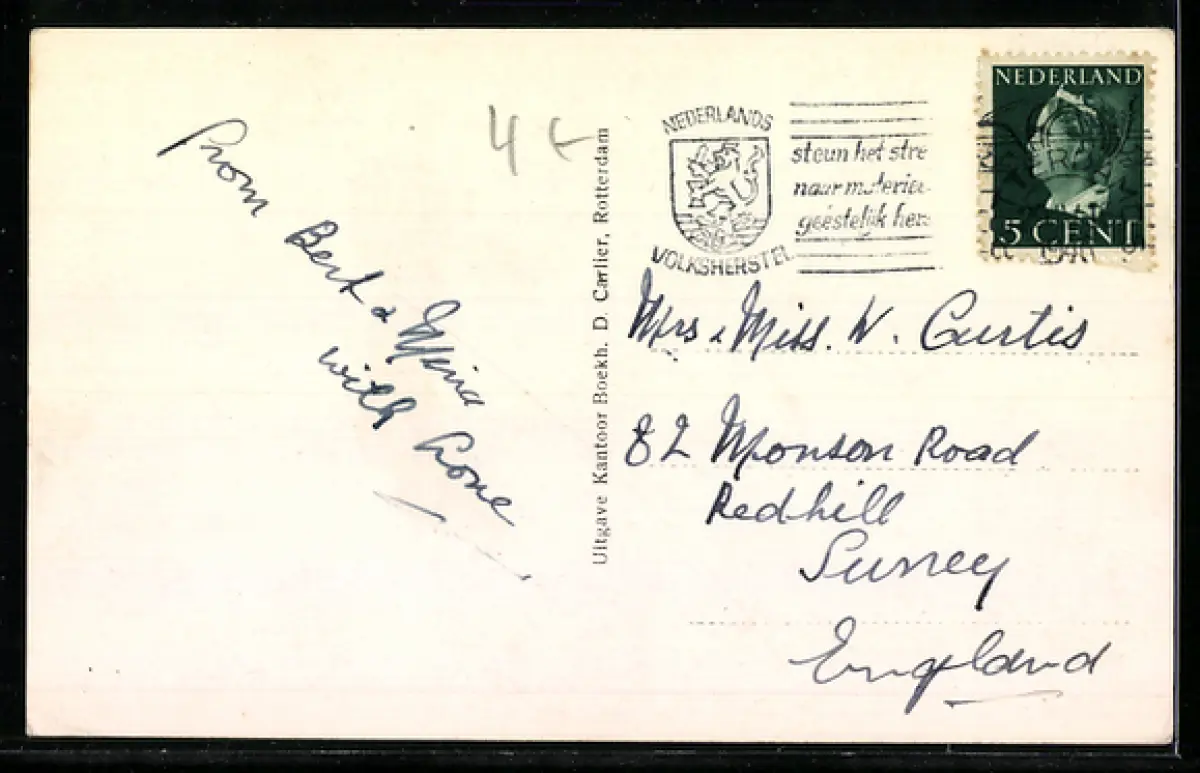 From
Bert & Mina
with Love
4
Uitgave Kantoor Boekh. D. Carlier, Rotterdam
NEDERLANDS
VOLKSHERSTEL
steun het stre
naar materiee
geestelijk hers
NEDERLAND
5 CENT
Mrs & Miss. W. Curtis
82 Monson Road
Redhill
Surrey
England